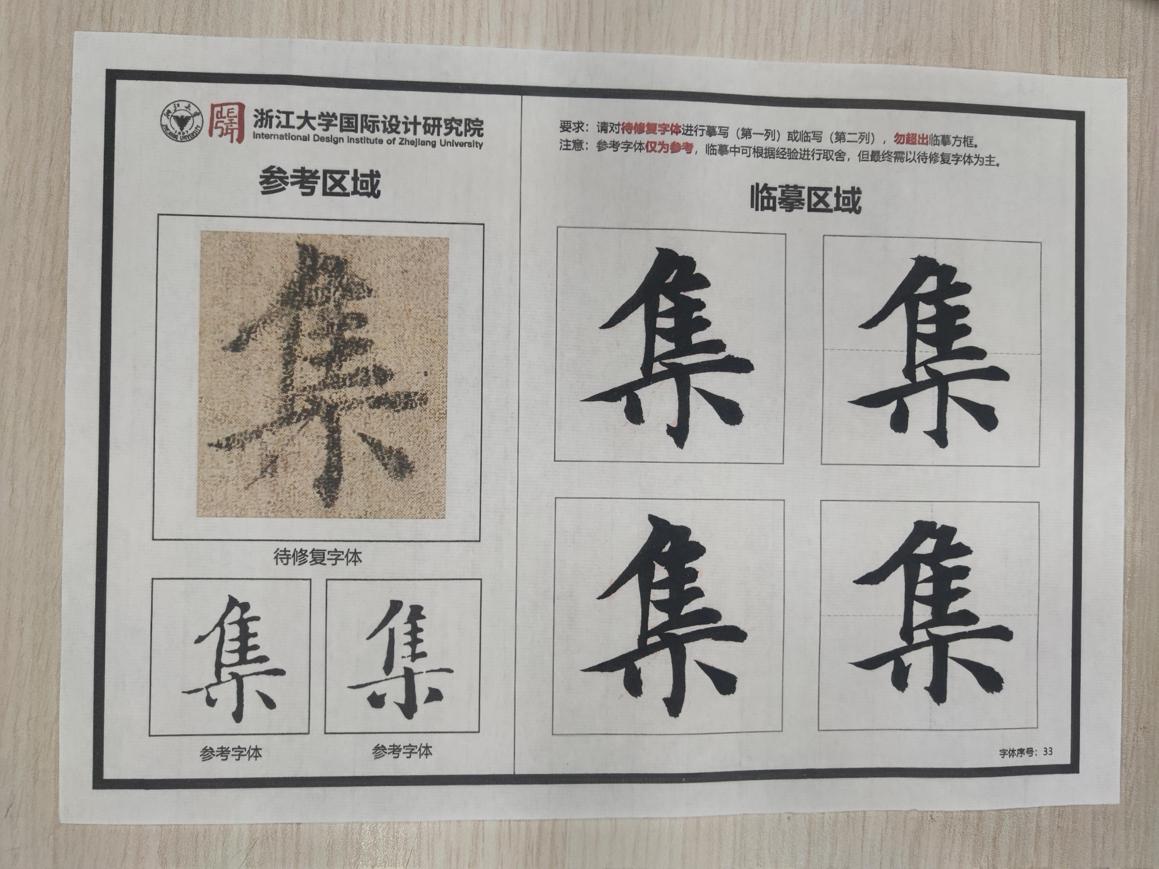 浙江大学国际设计研究院
International Design Institute of Zhejiang University
参考区域
集
待修复字体
集
集
参考字体
参考字体
要求：请对待修复字体进行摹写（第一列）或临写（第二列），勿超出临摹方框。
注意：参考字体仅为参考，临摹中可根据经验进行取舍，但最终需以待修复字体为主。
临摹区域
集
集
集
集
字体序号：33